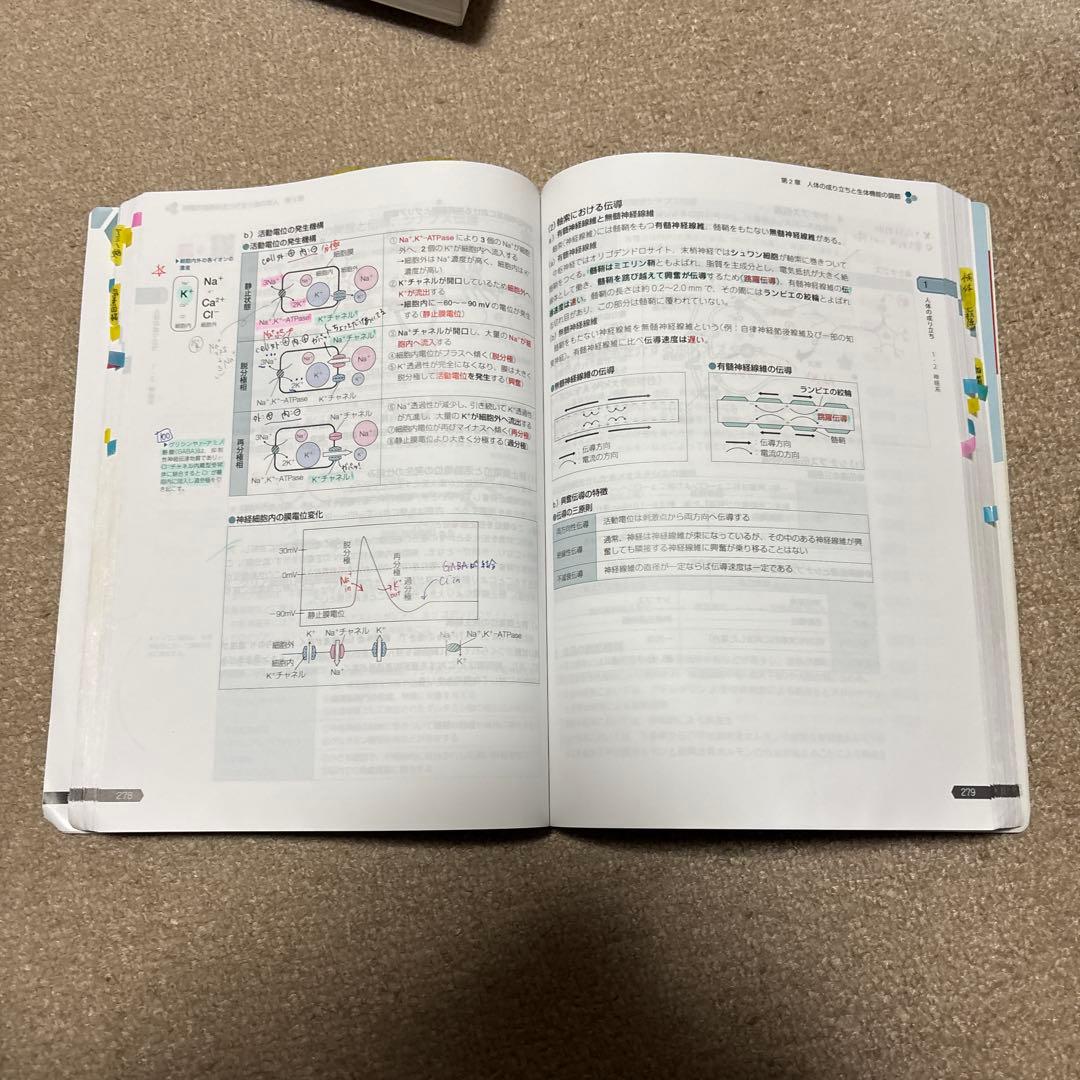 b）活動電位の発生機構
●活動電位の発生機構
▶細胞内外の各イオンの
濃度
K⁺
Na⁺
Ca²⁺
Cl⁻
細胞内
細胞外
静止状態
cell外⊕ 内⊖ 分極
細胞膜
細胞内
細胞外
3Na⁺
2K⁺
Na⁺
K⁺
Na⁺,K⁺-ATPase
K⁺チャネル
①Na⁺,K⁺-ATPaseにより3個のNa⁺が細胞
外へ、2個のK⁺が細胞内へ流入する
→細胞外はNa⁺濃度が高く、細胞内はK⁺
濃度が高い
②K⁺チャネルが開口しているため細胞外へ
K⁺が流出する
→細胞内に−60～−90 mVの電位が発生
する（静止膜電位）
脱分極相
Na⁺チャネル
3Na⁺
2K⁺
Na⁺
K⁺
Na⁺,K⁺-ATPase
K⁺チャネル
③Na⁺チャネルが開口し、大量のNa⁺が細
胞内へ流入する
④細胞内電位がプラスへ傾く（脱分極）
⑤K⁺透過性が完全になくなり、膜は大きく
脱分極して活動電位を発生する（興奮）
再分極相
外:⊕ 内:⊖
Na⁺チャネル
3Na⁺
2K⁺
Na⁺
K⁺
Na⁺,K⁺-ATPase
K⁺チャネル
⑥Na⁺透過性が減少し、引き続いてK⁺透過性
が亢進し、大量のK⁺が細胞外へ流出する
⑦細胞内電位が再びマイナスへ傾く（再分極）
⑧静止膜電位より大きく分極する（過分極）
100
▶グリシンやγ-アミノ
酪酸(GABA)は、抑制
性神経伝達物質であり、
Cl⁻チャネル内蔵型受容
体に結合するとCl⁻が細
胞内に流入し過分極を引
き起こす。
●神経細胞内の膜電位変化
30mV
0mV
−90mV
脱分極
再分極
過分極
静止膜電位
Na⁺ in
K⁺ out
GABAの結合
Cl⁻in
K⁺
Na⁺チャネル
K⁺
Na⁺
Na⁺,K⁺-ATPase
細胞外
細胞内
K⁺チャネル
Na⁺
K⁺
278
第2章 人体の成り立ちと生体機能の調節
(2) 軸索における伝導
a）有髄神経線維と無髄神経線維
軸索（神経線維）には髄鞘をもつ有髄神経線維、髄鞘をもたない無髄神経線維がある。
(a) 有髄神経線維
中枢神経ではオリゴデンドロサイト、末梢神経ではシュワン細胞が軸索に巻きついて
髄鞘をつくる。髄鞘はミエリン鞘ともよばれ、脂質を主成分とし、電気抵抗が大きく絶
縁体として働き、髄鞘を跳び越えて興奮が伝導するため（跳躍伝導）、有髄神経線維の伝
導速度は速い。髄鞘の長さは約0.2～2.0 mmで、その間にはランビエの絞輪とよばれ
る切れ目があり、この部分は髄鞘に覆われていない。
(b) 無髄神経線維
髄鞘をもたない神経線維を無髄神経線維という（例：自律神経節後線維及び一部の知
覚神経）。有髄神経線維に比べ伝導速度は遅い。
●無髄神経線維の伝導
：伝導方向
：電流の方向
●有髄神経線維の伝導
ランビエの絞輪
跳躍伝導
髄鞘
：伝導方向
：電流の方向
b）興奮伝導の特徴
●伝導の三原則
両方向性伝導
活動電位は刺激点から両方向へ伝導する
絶縁性伝導
通常、神経は神経線維が束になっているが、その中のある神経線維が興
奮しても隣接する神経線維に興奮が乗り移ることはない
不減衰伝導
神経線維の直径が一定ならば伝導速度は一定である
1
人体の成り立ち
1・2 神経系
279